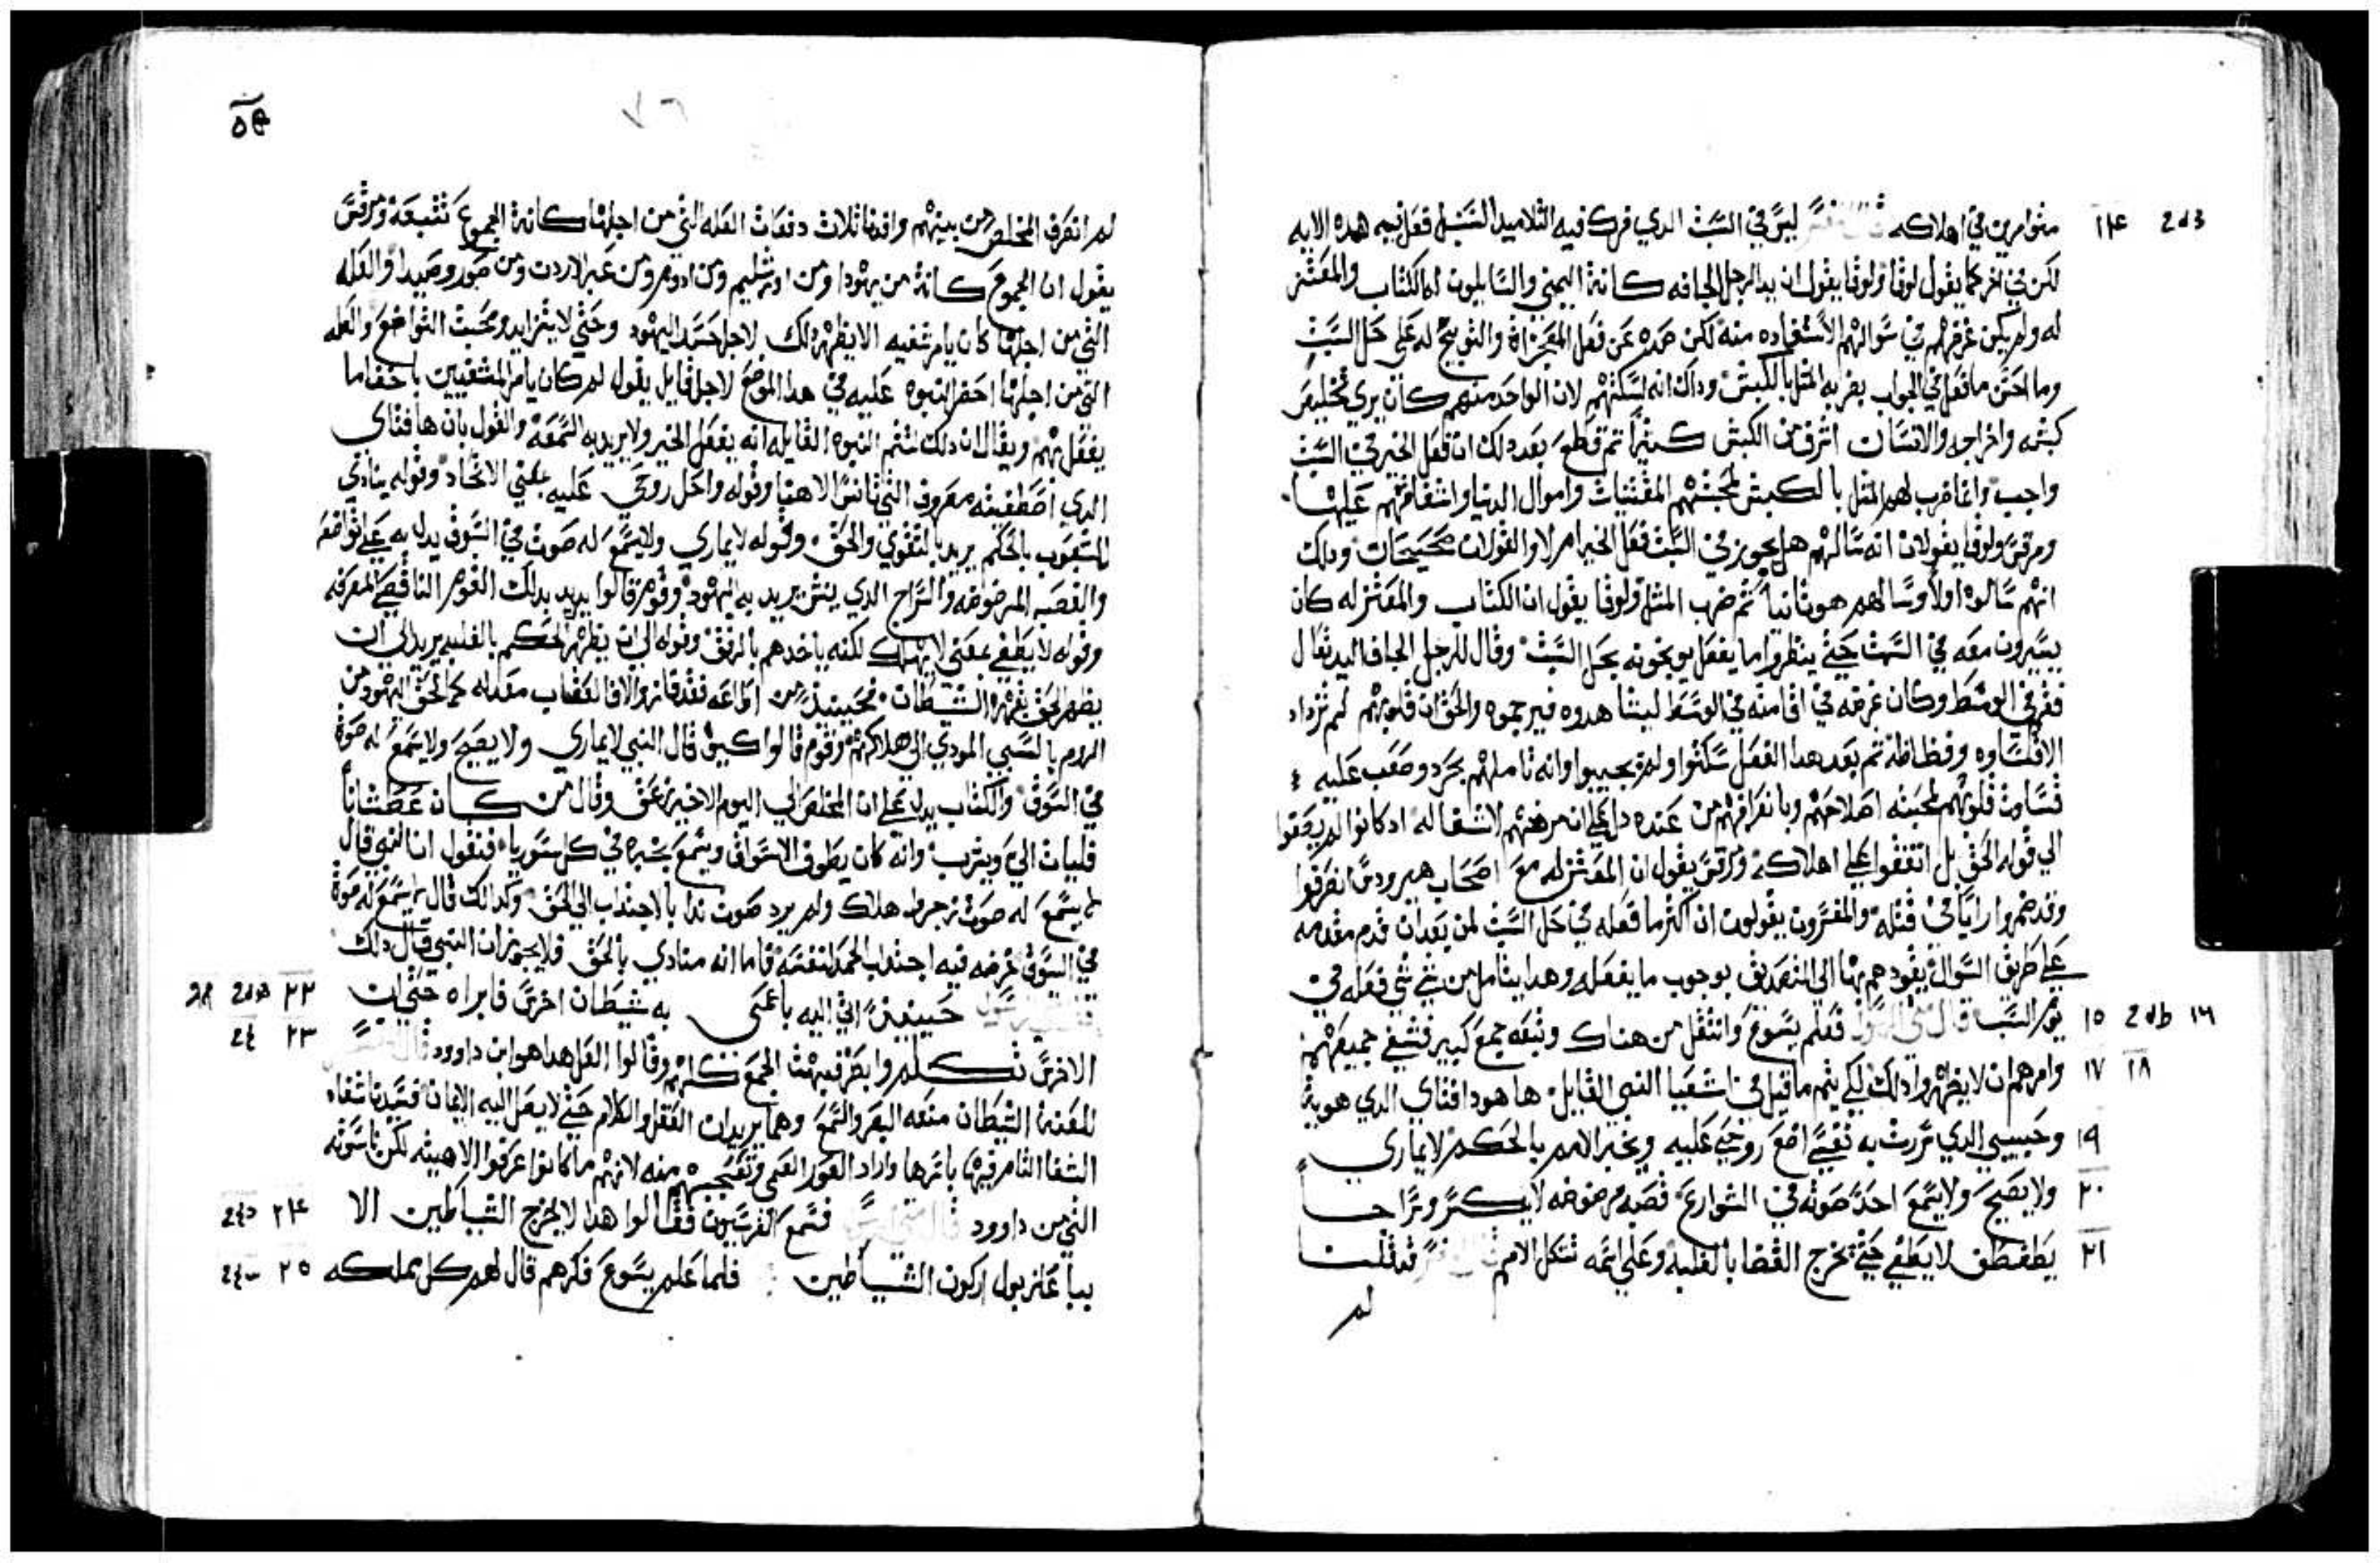 متوامرين في اهلاكه قال المفسر ليس في السبت الدي فرك فيه التلاميد السنبل فعل فيه هده الايه
لكن في اخر كما يقول لوقا ولوقا يقول ان يد الرجل الجافه كانة اليمني والسايلون له الكتاب والمعتز
له ولم يكن غرضهم في سوالهم الاستفاده منه لكن صده عن فعل المعجزاة والتوبيخ له علي حل السبت
وما احسن ما فعل في الجواب بضربه المثل بالكبش وداك انه اسكتهم لان الواحد منهم كان يري تخليص
كبشه واخراجه والانسان اشرف من الكبش كثيرا تم قطع بعد دلك ان فعل الخير في السبت
واجب وانما ضرب لهم المثل بالكبش لمحبتهم المقتنيات واموال الدنيا واشفاقهم عليها
ومرقس ولوقا يقولان انه سالهم هل يجوز في السبت فعل الخير ام لا والقولان صحيحان وداك
انهم سالوه اولا وسالهم هو تانيا تم ضرب المثل ولوقا يقول ان الكتاب والمعتزله كان
يسيرون معه في السبت حتي ينظروا ما يفعل يوبخونه بحل السبت وقال للرجل الجاف اليد تعال
فقم في الوسط وكان غرضه في اقامته في الوسط ليشاهدوه فيرحموه والحق ان قلوبهم لم تزداد
الا قساوه وفظاظة تم بعد هدا الفعل سكتوا ولم يجيبوا وانه تاملهم بحرد وصعب عليه
قساوة قلوبهم لمحبته اصلاحهم وبانصرافهم من عنده دل علي ان مرضهم لا شفا له اد كانوا لم يصغوا
الي قوله الحق بل اتفقوا علي اهلاكه ومرقس يقول ان المعتزله مع اصحاب هيرودس انصرفوا
وقد ضمروا رايا في قتله والمفسرون يقولون ان اكثر ما فعله في حل السبت لمن بعد ان قدم مقدمه
علي طريق السوال يقودهم بها الي التصديق بوجوب ما يفعله وهدا يتامل من شي شي فعله في
١٤ يوم السبت قال متي الرسول فعلم يسوع وانتقل من هناك وتبعه جمع كبير فشفي جميعهم ١٥ ١٦
وامرهم ان لا يظهروا دلك لكي يتم ما قيل في اشعيا النبي القايل ها هودا فتاي الدي هويته ١٧ ١٨
وحبيبي الدي سرت به نفسي اضع روحي عليه ويخبر الامم بالحكم لا يماري ١٩
ولا يصيح ولا يسمع احد صوته في الشوارع قصبه مرضوضه لا يكسر وسراجا ٢٠
يطفطف لا يطفي حتي تخرج القضا بالغلبه وعلي اسمه تتكل الامم قال المفسر فتلت ٢١
لم
لم انصرف المخلص من بينهم وافدنا تلات دفعات العله التي من اجلها كانة الجموع تتبعه ومرقس
يقول ان الجموع كانة من يهودا ومن اورشليم ومن ادوم ومن عبر الاردن ومن صور وصيدا والعله
التي من اجلها كان يامر شفيه الا يظهر دلك لاجل حسد اليهود وحتي لا يتزايد ومحبت التواضع والعله
التي من اجلها احضر النبوه عليه في هدا الموضع لاجل قايل يقول لم كان يامر المشفيين باخفا ما
يفعل بهم ويقال ان دلك لتتم النبوه القايله انه يفعل الخير ولا يريد به السمعه والقول بان ها فتاي
الدي اصطفيته معروف التي تانس الاهنا وقوله واحل روحي عليه بمعني الاتحاد وقوله ينادي
للشعوب بالحكم يريد بالتقوي والحق وقوله لا يماري ولا يسمع له صوت في السوق يدل به علي تواضعه
والقصبه المرضوضه والسراج الدي ينش يريد به اليهود وقوم قالوا يريد بدلك القوم الناقصي المعرفه
وقوله لا يطفي بمعني لا يهلك لكنه ياخدهم بالرفق وقوله الي ان يظهر الحكم بالغلبه يريد الي ان
يظهر الحق بقهره الشيطان فحينيد من اطاعه فقد فاز والا فالعقاب معد له كما لحق اليهود من
الروم بالسبي المودي الي هلاكهم وقوم قالوا كيف قال النبي لا يماري ولا يصيح ولا يسمع له صوة
في السوق والكتاب يدل علي ان المخلص الي اليوم الاخير زعق وقال من كان عطشانا
فليات الي ويشرب وانه كان يطوف الاسواق ويسمع بخبره في كل سوريا فنقول ان النبي قال
لا يسمع له صوت زجر ولا هلاك ولم يرد صوت ندا بالاجتداب الي الحق وكدالك قال لا يسمع له صوة
في السوق غرضه فيه اجتداب الحمد لنفسه فاما انه منادي بالحق فلا يجوز ان النبي قال دلك
قال متي الرسول حينيد اتي اليه باعمي به شيطان اخرس فابراه حتي ان ٢٢
الاخرس تكلم وابصر فبهت الجمع كلهم وقالوا لعل هدا هو ابن داوود قال المفسر ٢٣
للعنة الشيطان منعه البصر والسمع وهما يريدان العقل والكلام حتي لا يصل اليه الايمان فسيدنا شفاه
الشفا التام فيها باسرها واراد القوم العمي وتعجبهم منه لانهم ما كانوا عرفوا الاهيته لكن ناسوته
التي من داوود قال متي الرسول فسمع الفريسيون فقالوا هدا لا يخرج الشياطين الا ٢٤
بباعلزبول اركون الشياطين فلما علم يسوع فكرهم قال لهم كل مملكه ٢٥